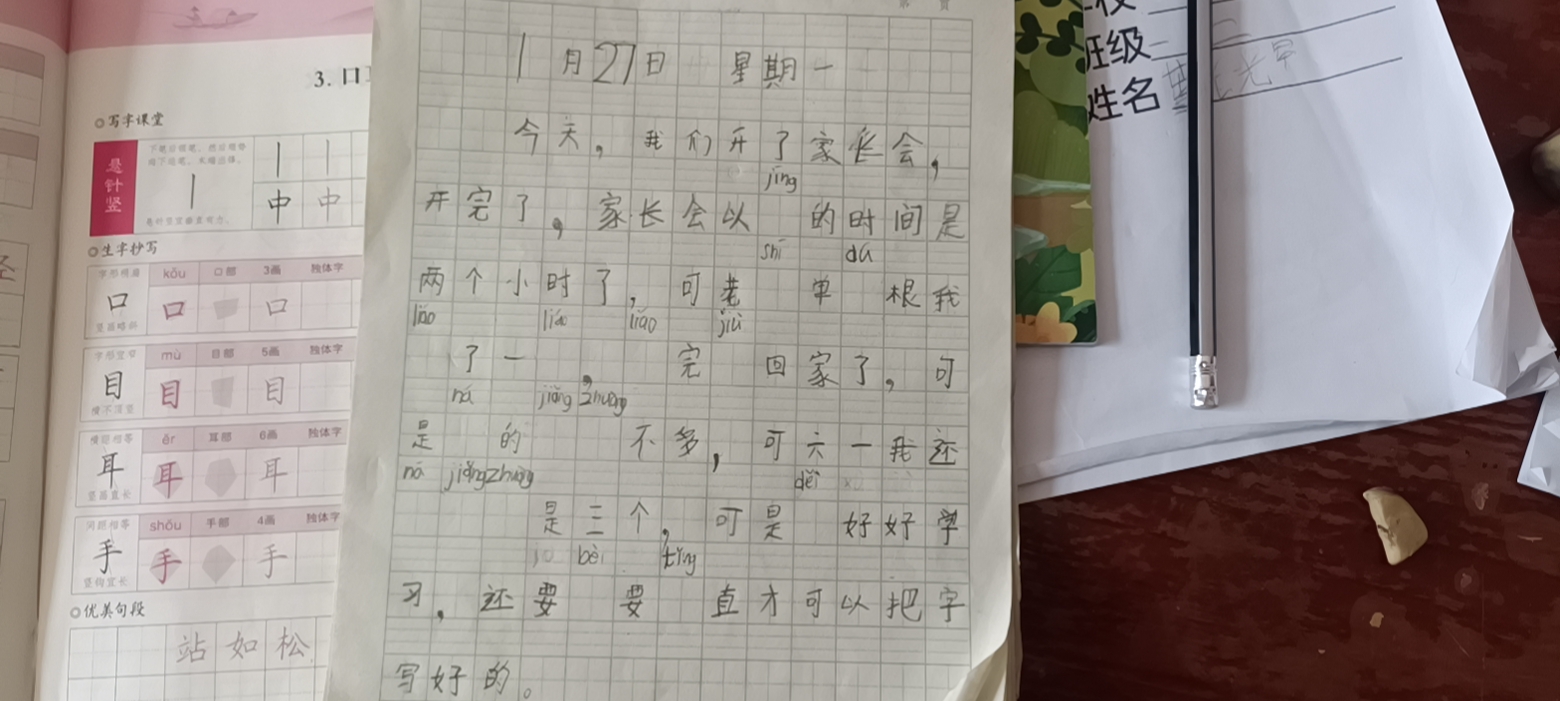 3. 口
写字课堂
悬针竖
中 中
生字抄写
kǒu 口部 3画 独体字
口 口 口
竖画略斜
字形宜窄 mù 目部 5画 独体字
目 目 目
横不顶竖
横距相等 ěr 耳部 6画 独体字
耳 耳 耳
竖画直长
间距相等 shǒu 手部 4画 独体字
手 手 手
竖钩宜长
优美句段
站如松
1月27日 星期一
今天，我们开了家长会，
jīng
开完了，家长会以 的时间是
shī dú
两个小时了，可老 单 根我
liáo liáo jiù
了一 ，完 回家了，可
ná jiǎng zhuàng
是 的 不多，可六一我还
nā jiǎngzhuàng děi
是三个，可是 好好学
bèi tǐng
习，还要 要 直才可以把字
写好的。
班级
姓名